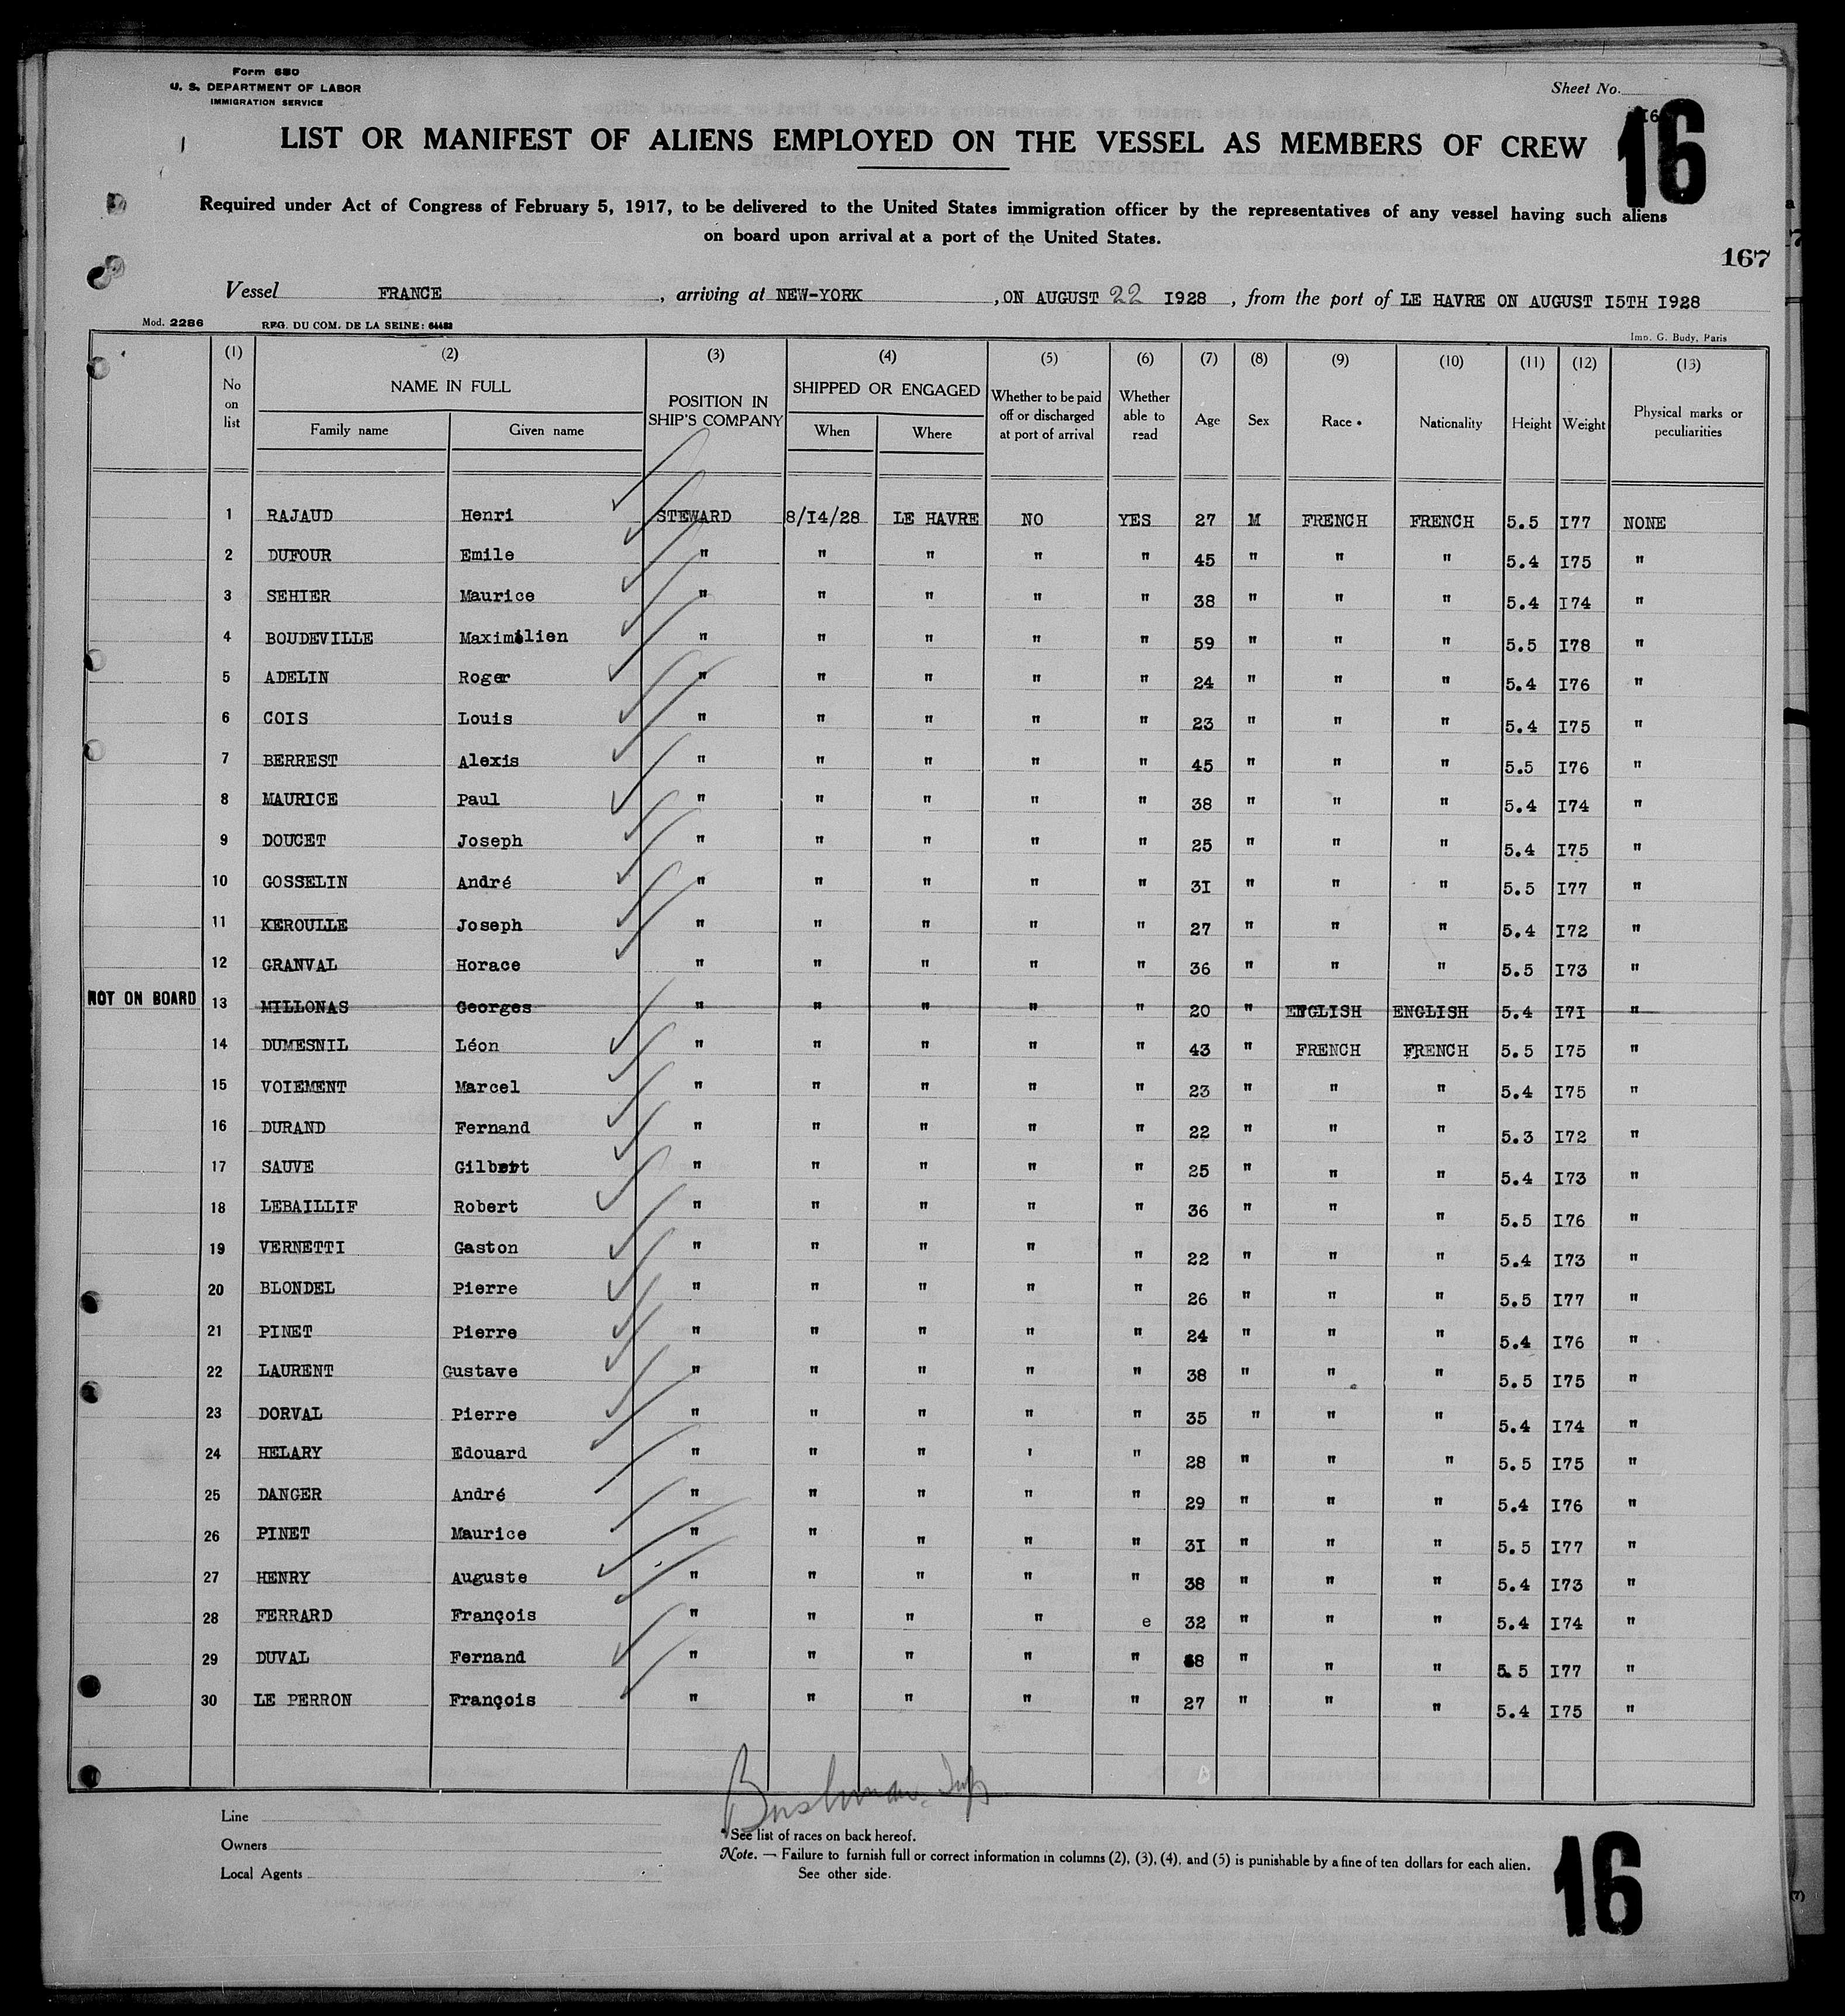 Form 680
U. S. DEPARTMENT OF LABOR
IMMIGRATION SERVICE
Sheet No.
16
16
LIST OR MANIFEST OF ALIENS EMPLOYED ON THE VESSEL AS MEMBERS OF CREW
Required under Act of Congress of February 5, 1917, to be delivered to the United States immigration officer by the representatives of any vessel having such aliens
on board upon arrival at a port of the United States.
167
Vessel FRANCE, arriving at NEW-YORK, ON AUGUST 22 I928, from the port of LE HAVRE ON AUGUST I5TH I928
Mod. 2286 REG. DU COM. DE LA SEINE: 64483 Imp. G. Budy, Paris
(1) (2) (3) (4) (5) (6) (7) (8) (9) (10) (11) (12) (13)
No on list NAME IN FULL Family name Given name POSITION IN SHIP'S COMPANY SHIPPED OR ENGAGED When Where Whether to be paid off or discharged at port of arrival Whether able to read Age Sex Race * Nationality Height Weight Physical marks or peculiarities
1 RAJAUD Henri STEWARD 8/I4/28 LE HAVRE NO YES 27 M FRENCH FRENCH 5.5 I77 NONE
2 DUFOUR Emile " " " " " 45 " " " 5.4 I75 "
3 SEHIER Maurice " " " " " 38 " " " 5.4 I74 "
4 BOUDEVILLE Maximilien " " " " " 59 " " " 5.5 I78 "
5 ADELIN Roger " " " " " 24 " " " 5.4 I76 "
6 COIS Louis " " " " " 23 " " " 5.4 I75 "
7 BERREST Alexis " " " " " 45 " " " 5.5 I76 "
8 MAURICE Paul " " " " " 38 " " " 5.4 I74 "
9 DOUCET Joseph " " " " " 25 " " " 5.4 I75 "
10 GOSSELIN André " " " " " 3I " " " 5.5 I77 "
11 KEROULLE Joseph " " " " " 27 " " " 5.4 I72 "
12 GRANVAL Horace " " " " " 36 " " " 5.5 I73 "
NOT ON BOARD 13 MILLONAS Georges " " " " " 20 " ENGLISH ENGLISH 5.4 I7I "
14 DUMESNIL Léon " " " " " 43 " FRENCH FRENCH 5.5 I75 "
15 VOIEMENT Marcel " " " " " 23 " " " 5.4 I75 "
16 DURAND Fernand " " " " " 22 " " " 5.3 I72 "
17 SAUVE Gilbert " " " " " 25 " " " 5.4 I73 "
18 LEBAILLIF Robert " " " " " 36 " " " 5.5 I76 "
19 VERNETTI Gaston " " " " " 22 " " " 5.4 I73 "
20 BLONDEL Pierre " " " " " 26 " " " 5.5 I77 "
21 PINET Pierre " " " " " 24 " " " 5.4 I76 "
22 LAURENT Gustave " " " " " 38 " " " 5.5 I75 "
23 DORVAL Pierre " " " " " 35 " " " 5.4 I74 "
24 HELARY Edouard " " " ' " 28 " " " 5.5 I75 "
25 DANGER André " " " " " 29 " " " 5.4 I76 "
26 PINET Maurice " " " " " 3I " " " 5.5 I77 "
27 HENRY Auguste " " " " " 38 " " " 5.4 I73 "
28 FERRARD François " " " " e 32 " " " 5.4 I74 "
29 DUVAL Fernand " " " " " " " " 5.5 I77 "
30 LE PERRON François " " " " " 27 " " " 5.4 I75 "
Bushman. Insp
Line
Owners
Local Agents
* See list of races on back hereof.
Note. — Failure to furnish full or correct information in columns (2), (3), (4), and (5) is punishable by a fine of ten dollars for each alien.
See other side.
16